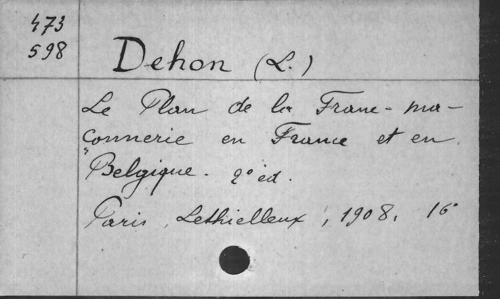 473
598
Dehon (L.)
Le Plan de la Franc-ma-
çonnerie en France et en
Belgique. 2º éd.
Paris, Lethielleux, 1908, 16º